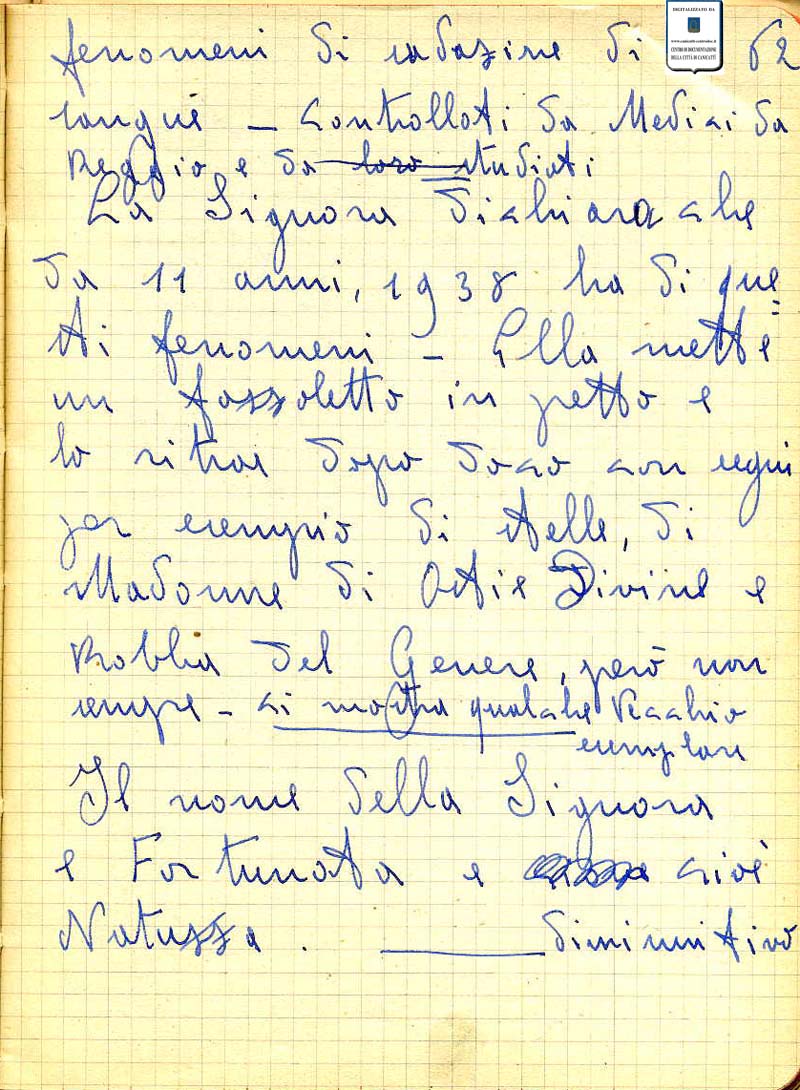 DIGITALIZZATO DA
CENTRO DI DOCUMENTAZIONE
DELLA CITTÀ DI CANICATTÌ
62
fenomeni di sudazione di
sangue – controllati da Medici da
Reggio e da loro studiati
La Signora dichiara che
da 11 anni, 1938 ha di que=
sti fenomeni – Ella mette
un fazzoletto in petto e
lo ritrae dopo poco con segni
per esempio di stelle, di
Madonne di Ostie Divine e
Robba del Genere, però non
sempre – ci mostra qualche Vecchio
esemplare
Il nome della Signora
e Fortunata e cioè
Natuzza. diminutivo